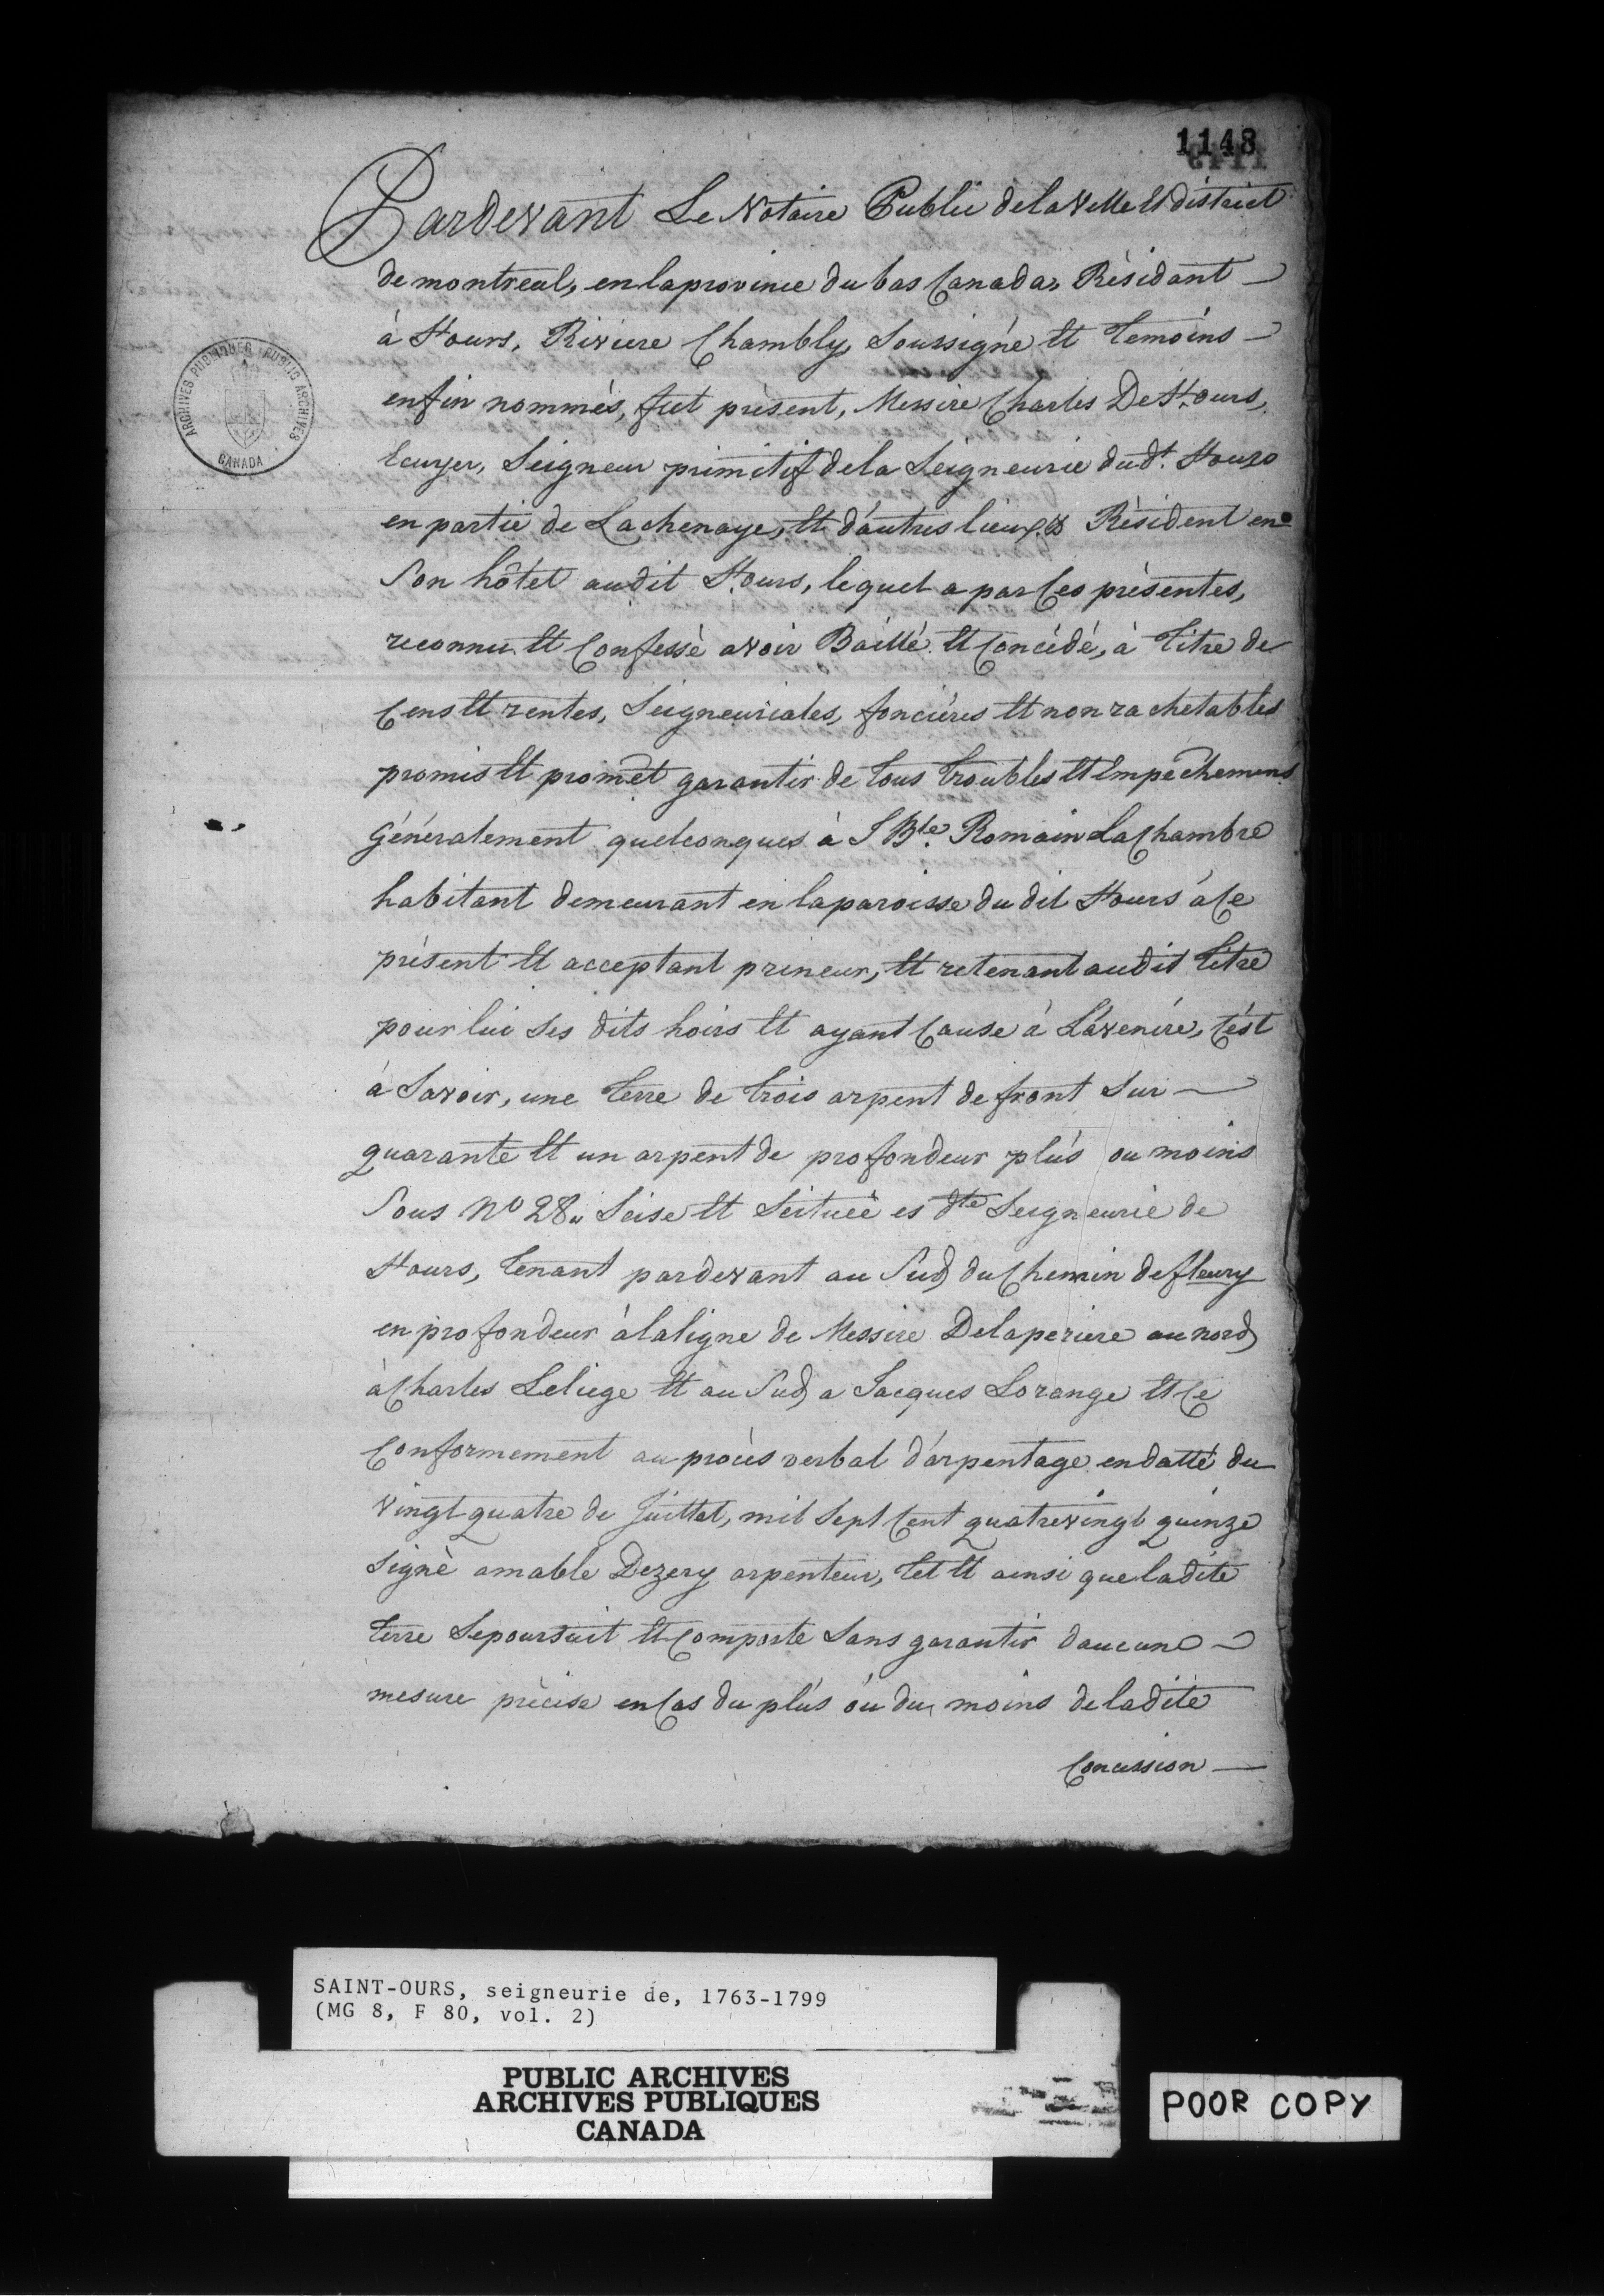 1148
Pardevant Le Notaire Public de la Ville et district
de montreal, en la province du bas Canada, Résidant
à St ours, Riviere Chambly, Soussigné et Temoins
enfin nommés, fut présent, Messire Charles De St. ours,
Ecuyer, Seigneur primitif de la Seigneurie du dt. St ours
en partie de Lachenaye, et d'autres lieux, Résident en
Son hôtel audit St. ours, lequel a par Ces présentes,
reconnu et Confessé avoir Baillé et Concédé, à Titre de
Cens et rentes, Seigneuriales, foncières et non rachetables
promis et promet garantir de tous troubles et empêchemens
Généralement quelconques à J Bte. Romain LaChambre
habitant demeurant en la paroisse du dit St ours à Ce
présent et acceptant preneur, et retenant audit Titre
pour lui Ses dits hoirs et ayant Cause à L'avenire, C'ést
à Savoir, une Terre de trois arpent de front Sur
quarante et un arpent de profondeur plus ou moins
Sous No 28 " Seise et Seituée es dte Seigneurie de
St ours, tenant pardevant au Sud du Chemin de fleury
en profondeur à la ligne de Messire Delaperiere au nord
à Charles Leliege et au Sud a Jacques Lorange et Ce
Conformement au procès verbal d'arpentage en datté du
vingt quatre de Juillet, mil Sept Cent quatrevingt quinze
Signé amable Dezery arpenteur, tel et ainsi que ladite
terre Se poursuit et Comporte Sans garantir daucune
mesure précise en Cas du plus ou du moins de ladite
Concession
ARCHIVES PUBLIQUES PUBLIC ARCHIVES
CANADA
SAINT-OURS, seigneurie de, 1763-1799
(MG 8, F 80, vol. 2)
PUBLIC ARCHIVES
ARCHIVES PUBLIQUES
CANADA
POOR COPY